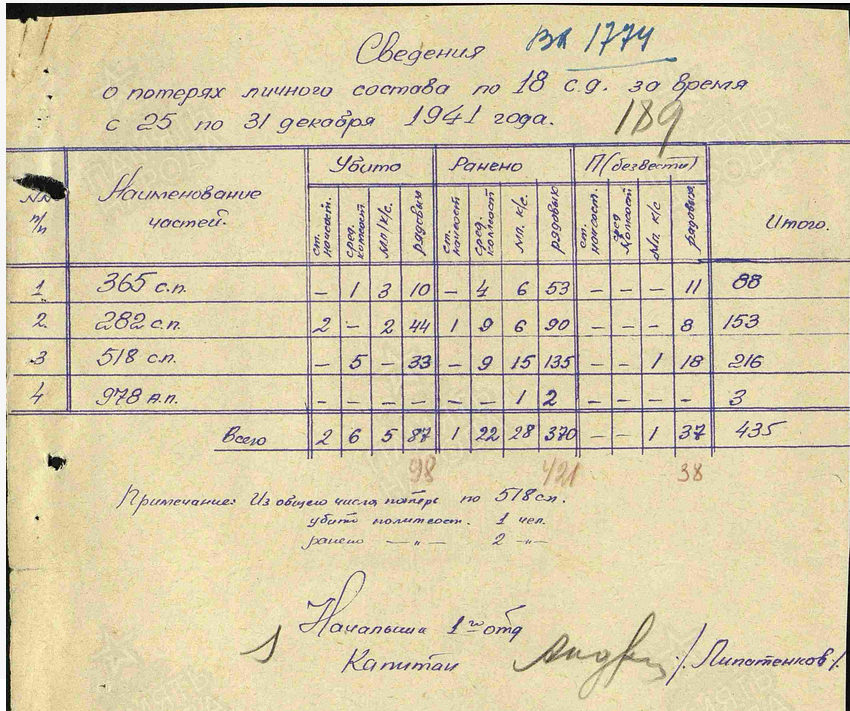 Сведения
ВХ 1774
о потерях личного состава по 18 с.д. за время
с 25 по 31 декабря 1941 года.
189
№№ п/п Наименование частей. Убито Ранено П(безвести) Итого.
ст. начсост. сред. комсост мл/к/с. рядовых ст. начсост сред. комсост мл. к/с. рядовых ст. начсост. сред комсост Мл. к/с рядовых
1 365 с.п. – 1 3 10 – 4 6 53 – – – 11 88
2. 282 с.п. 2 – 2 44 1 9 6 90 – – – 8 153
3 518 с.п. – 5 – 33 – 9 15 135 – – 1 18 216
4 978 а.п. – – – – – – 1 2 – – – – 3
Всего 2 6 5 87 1 22 28 370 – – 1 37 435
98 421 38
Примечание: Из общего числа потерь по 518 сп.
убито политсост. 1 чел.
ранено —„— 2 —„—
Начальник 1го отд
Капитан /Липатенков/.